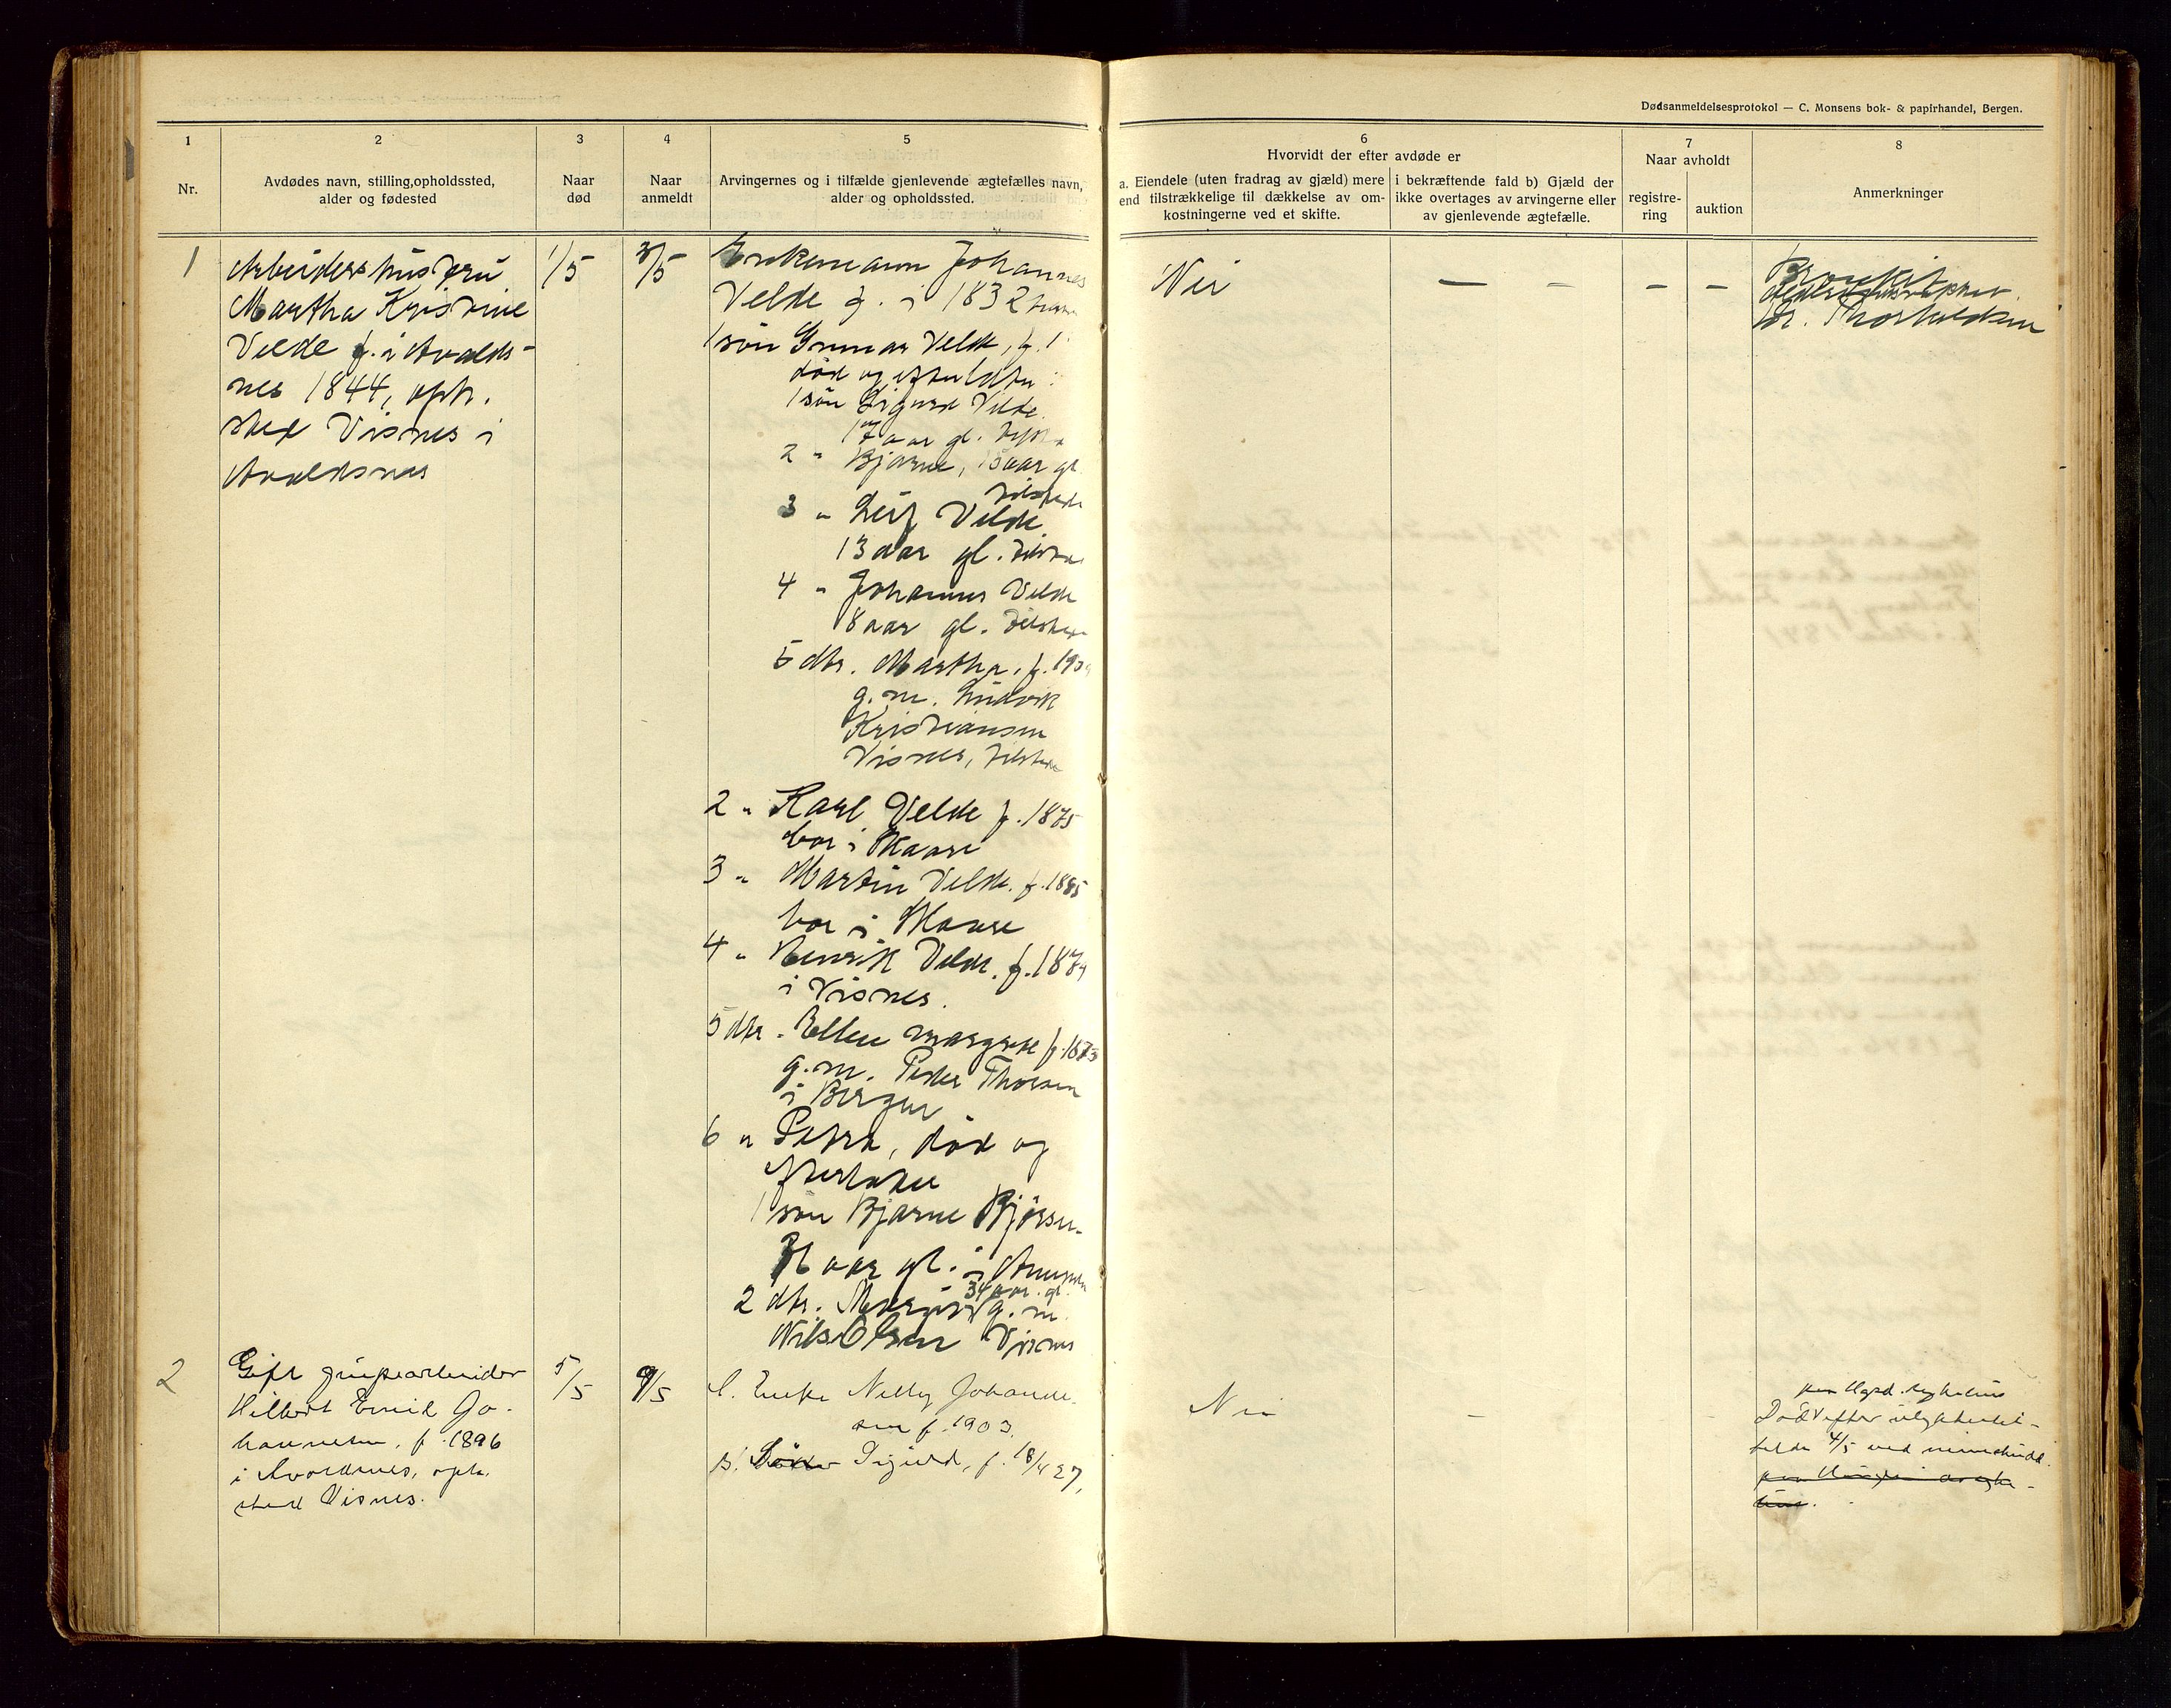 Dødsanmeldelsesprotokol — C. Monsens bok- & papirhandel, Bergen.
1
Nr.
2
Avdødes navn, stilling,opholdssted,
alder og fødested
3
Naar
død
4
Naar
anmeldt
5
Arvingernes og i tilfælde gjenlevende ægtefælles navn,
alder og opholdssted.
6
Hvorvidt der efter avdøde er
a. Eiendele (uten fradrag av gjæld) mere
end tilstrækkelige til dækkelse av om-
kostningerne ved et skifte.
i bekræftende fald b) Gjæld der
ikke overtages av arvingerne eller
av gjenlevende ægtefælle.
7
Naar avholdt
registre-
ring
auktion
8
Anmerkninger
1
Arbeiders hustru
Martha Kristine
Velde f. i Avalds-
nes 1844, oph.
sted Visnes i
Avaldsnes
1/5
3/5
Enkemann Johannes
Velde f. i 1832
1 søn Gunnar Velde, f. 1
død og efterlater:
1 søn Sigurd Velde
17 aar gl.
2 " Bjarne, 15 aar gl
tilstede
3 " Leif Velde
13 aar gl.
4 " Johannes Velde
8 aar gl. tilstede
5 dtr. Martha, f. 190
g.m. Ludvik
Kristiansen
Visnes, tilstede
2 " Karl Velde f. 1875
bor i Skaare
3 " Martin Velde. f. 1885
bor i Skaare
4 " Henrik Velde. f. 187
i Visnes.
5 dtr. Ellen Margrete f. 1873
g.m. Peder Thorsen
i Bergen
6 " Petra, død og
efterlater
1 søn Bjarne
aar gl. i
34 aar. gl.
2 dtr. g. m.
Nils Olsen Visnes
Nei
—
–
–
–
Bronkit
Alderdomssvakhet.
Dr. Thorvaldsen
2
Gift grupearbeider
Hilbert Emil Jo-
hannesen, f. 1896
i Avaldsnes, oph.
sted Visnes.
5/5
9/5
1. Enke Nelly Johanne-
sen f. 1903.
Sigurd, f. 18/4 27,
Nei
–
–
paa Hgsd. sykehus
Død efter ulykkestil-
felde 4/5 ved mineskudd.